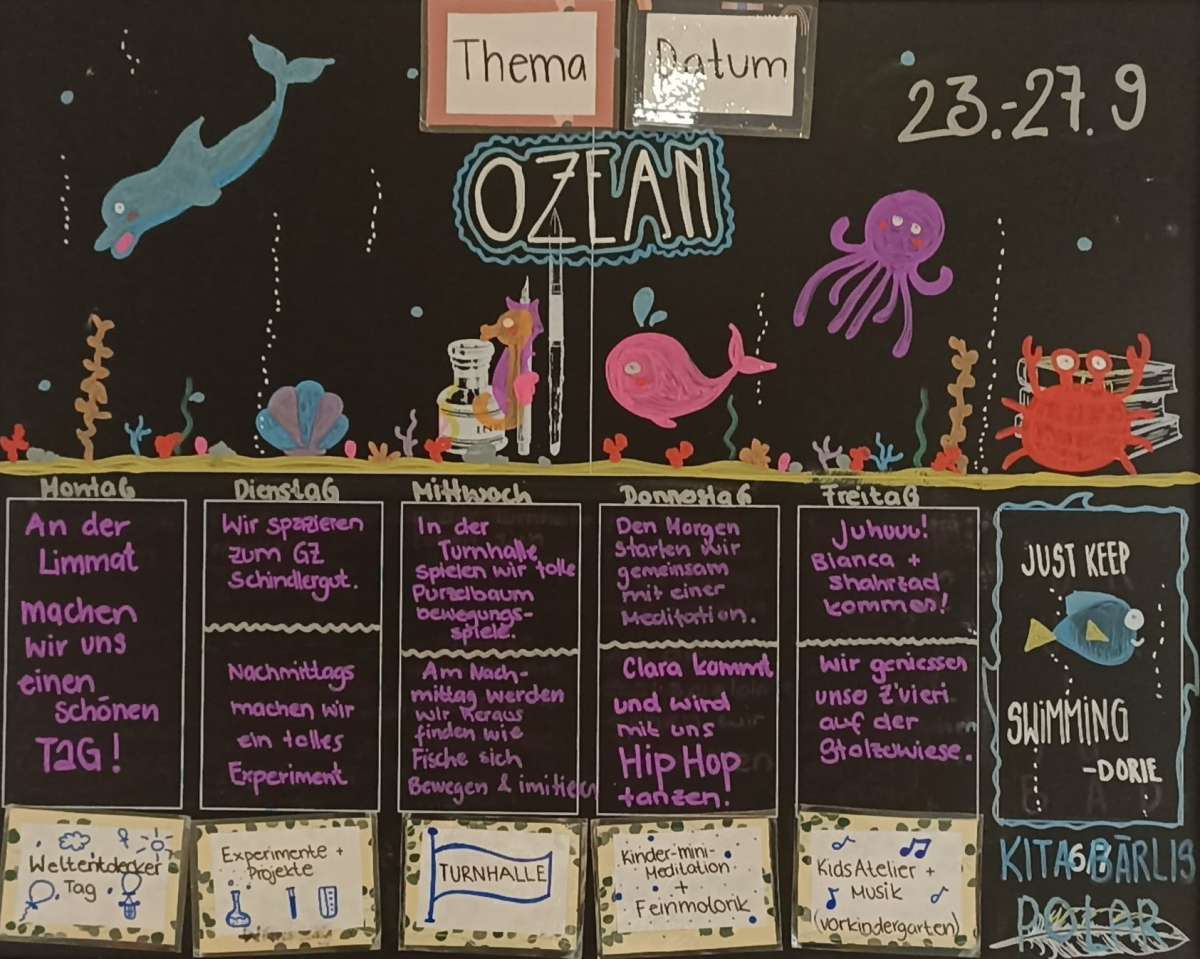 Thema
Datum
23.-27.9
OZEAN
INK
Montag
An der
Limmat
machen
wir uns
einen
schönen
TaG!
Dienstag
Wir spazieren
zum GZ
Schindlergut.
Nachmittags
machen wir
ein tolles
Experiment
Mittwoch
In der
Turnhalle
spielen wir tolle
Purzelbaum
bewegungs-
spiele.
Am Nach-
mittag werden
wir heraus
finden wie
Fische sich
Bewegen & imitieren
Donnestag
Den Morgen
starten wir
gemeinsam
mit einer
Meditation.
Clara kommt
und wird
mit uns
Hip Hop
tanzen.
Freitag
Juhuuu!
Bianca +
Shahrzad
kommen!
Wir geniessen
unse Z'vieri
auf der
Stolzewiese.
JUST KEEP
SWiMMiNG
-DORIE
Weltentdecker
Tag
Experimente +
Projekte
TURNHALLE
Kinder-mini-
Meditation
+
Feinmotorik
KidsAtelier +
Musik
(vorkindergarten)
KITA
BÄRLIS
POLAR